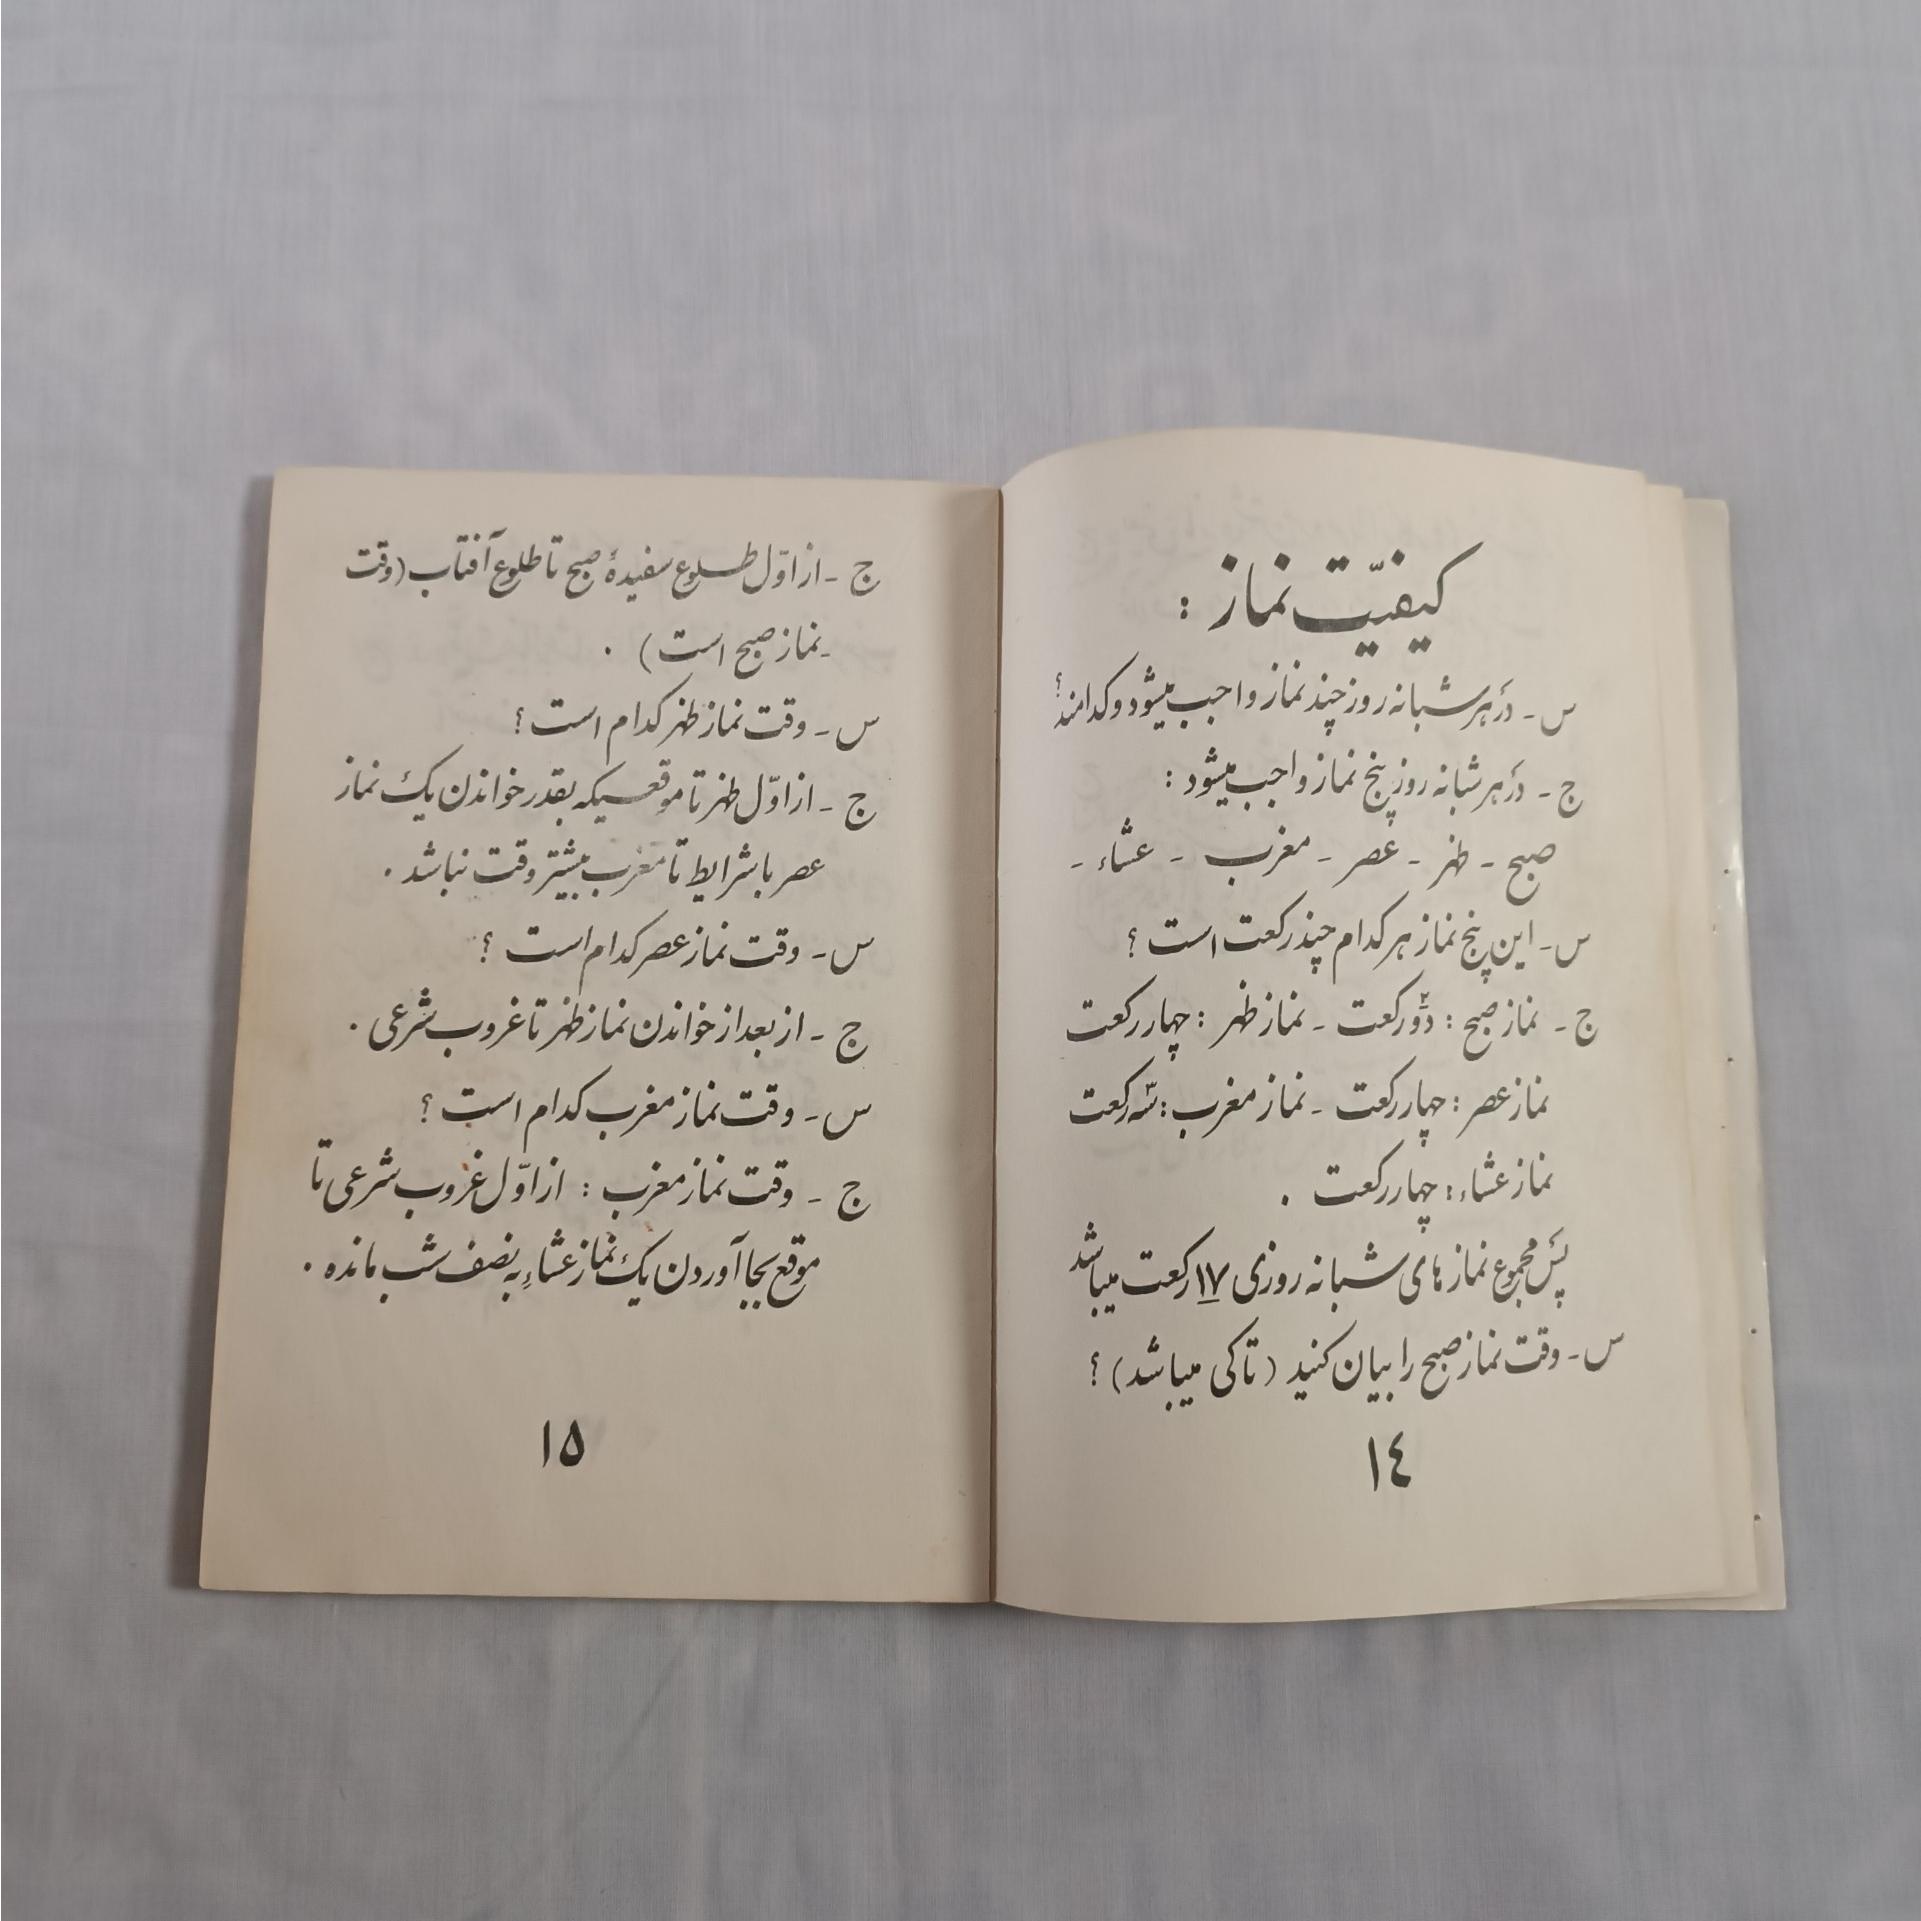 کیفیّت نماز :
س - در هر شبانه روز چند نماز واجب میشود و کدامند ؟
ج - در هر شبانه روز پنج نماز واجب میشود :
صبح - ظهر - عصر - مغرب - عشاء -
س - این پنج نماز هر کدام چند رکعت است ؟
ج - نماز صبح : دو رکعت - نماز ظهر : چهار رکعت
نماز عصر : چهار رکعت - نماز مغرب : سه رکعت
نماز عشاء : چهار رکعت .
پس مجموع نمازهای شبانه روزی ۱۷ رکعت میباشد
س - وقت نماز صبح را بیان کنید (تا کی میباشد) ؟
۱٤
ج - از اوّل طلوع سفیدهٔ صبح تا طلوع آفتاب (وقت
نماز صبح است) .
س - وقت نماز ظهر کدام است ؟
ج - از اوّل ظهر تا موقعیکه بقدر خواندن یک نماز
عصر با شرایط تا مغرب بیشتر وقت نباشد .
س - وقت نماز عصر کدام است ؟
ج - از بعد از خواندن نماز ظهر تا غروب شرعی .
س - وقت نماز مغرب کدام است ؟
ج - وقت نماز مغرب : از اوّل غروب شرعی تا
موقع بجا آوردن یک نماز عشاءِ به نصف شب مانده .
۱۵